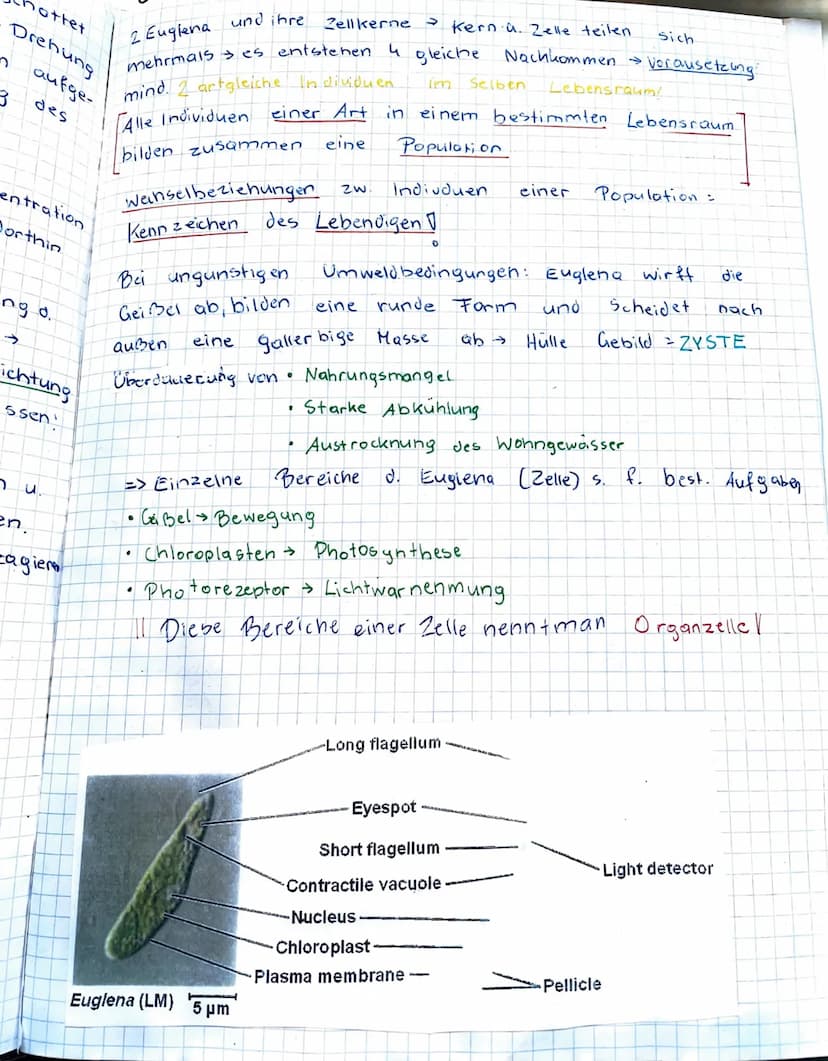 schottet
Drehung
aufge-
des
entration
dorthin
ng d.
→
ichtung
ssen:
u.
en.
tagieren
2 Euglena und ihre Zellkerne → Kern u. Zelle teilen sich
mehrmals → es entstehen 4 gleiche Nachkommen → Vorausetzung:
mind. 2 artgleiche Individuen im selben Lebensraum!
Alle Individuen einer Art in einem bestimmten Lebensraum
bilden zusammen eine Population
Wechselbeziehungen zw. Indivduen einer Population =
Kennzeichen des Lebendigen!
Bei ungunstigen Umweldbedingungen: Euglena wirft die
Geißel ab, bilden eine runde Form und Scheidet nach
außen eine gallerbige Masse ab → Hülle Gebild = ZYSTE
Überdauerung von • Nahrungsmangel
• Starke Abkühlung
• Austrocknung des Wohngewässer
=> Einzelne Bereiche d. Euglena (Zelle) s. f. best. Aufgaben
• Geißel → Bewegung
• Chloroplasten → Photosynthese
• Photorezeptor → Lichtwarnehmung
|| Diese Bereiche einer Zelle nennt man Organzelle!
Long flagellum
Eyespot
Short flagellum
Light detector
Contractile vacuole
Nucleus
Chloroplast
Plasma membrane
Pellicle
Euglena (LM) 5 µm